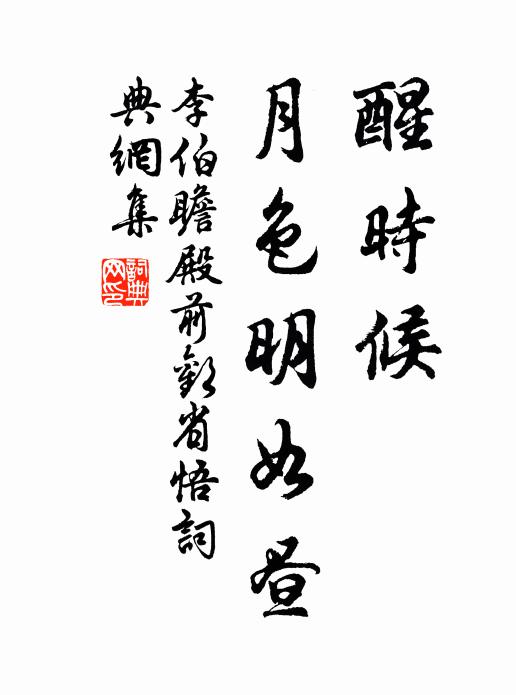 醒時候
月色明如晝
李伯瞻殿前歡省悟詞
典網集
詞典網印